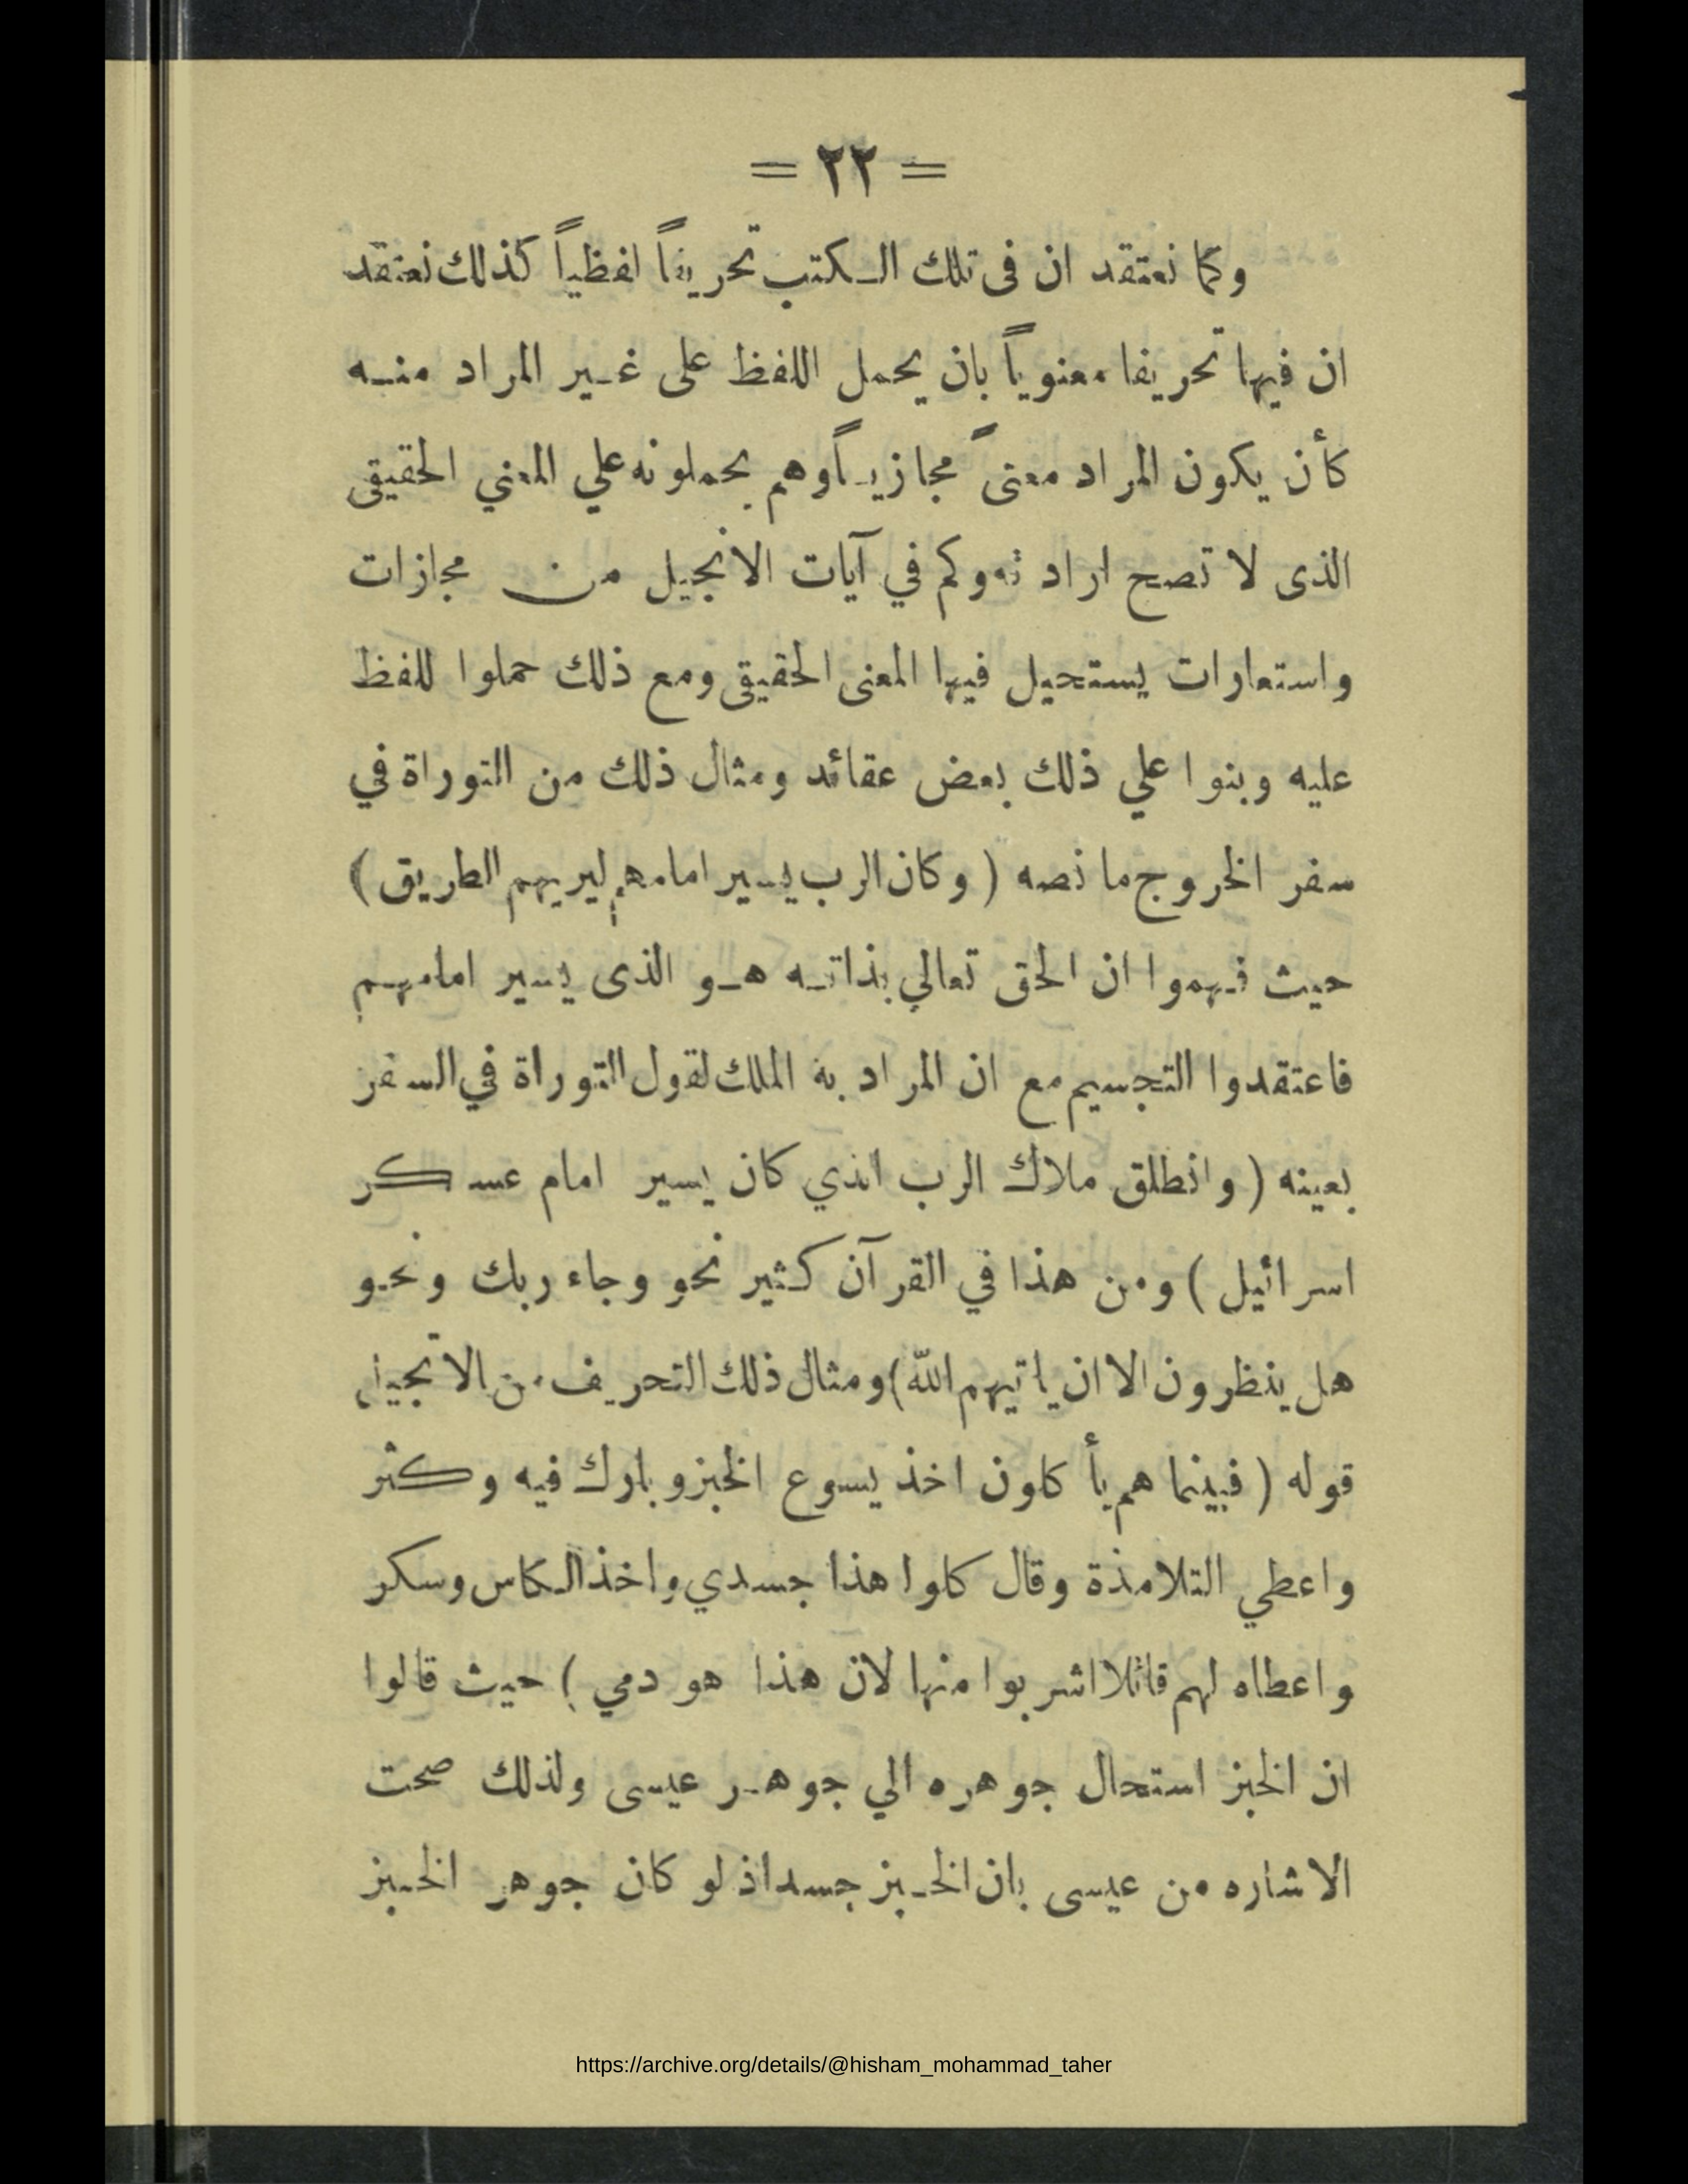 = ٢٢ =
وكما نعتقد ان فى تلك الكتب تحريفاً لفظياً كذلك نعتقد
ان فيها تحريفا معنوياً بان يحمل اللفظ على غير المراد منه
كأن يكون المراد معنىً مجازياً وهم يحملونه علي المعني الحقيقى
الذى لا تصح ارادته وكم في آيات الانجيل من مجازات
واستعارات يستحيل فيها المعنى الحقيقى ومع ذلك حملوا للفظ
عليه وبنوا علي ذلك بعض عقائد ومثال ذلك من التوراة في
سفر الخروج ما نصه ( وكان الرب يسير امامهم ليريهم الطريق )
حيث فهموا ان الحق تعالي بذاته هو الذى يسير امامهم
فاعتقدوا التجسيم مع ان المراد به الملك لقول التوراة في السفر
بعينه ( وانطلق ملاك الرب الذي كان يسير امام عسكر
اسرائيل ) ومن هذا في القرآن كثير نحو وجاء ربك ونحو
هل ينظرون الا ان ياتيهم الله ) ومثال ذلك التحريف من الانجيل
قوله ( فبينما هم يأكلون اخذ يسوع الخبز وبارك فيه وكثر
واعطي التلامذة وقال كلوا هذا جسدي واخذ الكاس وسكر
واعطاه لهم قائلا اشربوا منها لان هذا هو دمي ) حيث قالوا
ان الخبز استحال جوهره الي جوهر عيسى ولذلك صحت
الاشاره من عيسى بان الخبز جسد اذ لو كان جوهر الخبز
https://archive.org/details/@hisham_mohammad_taher